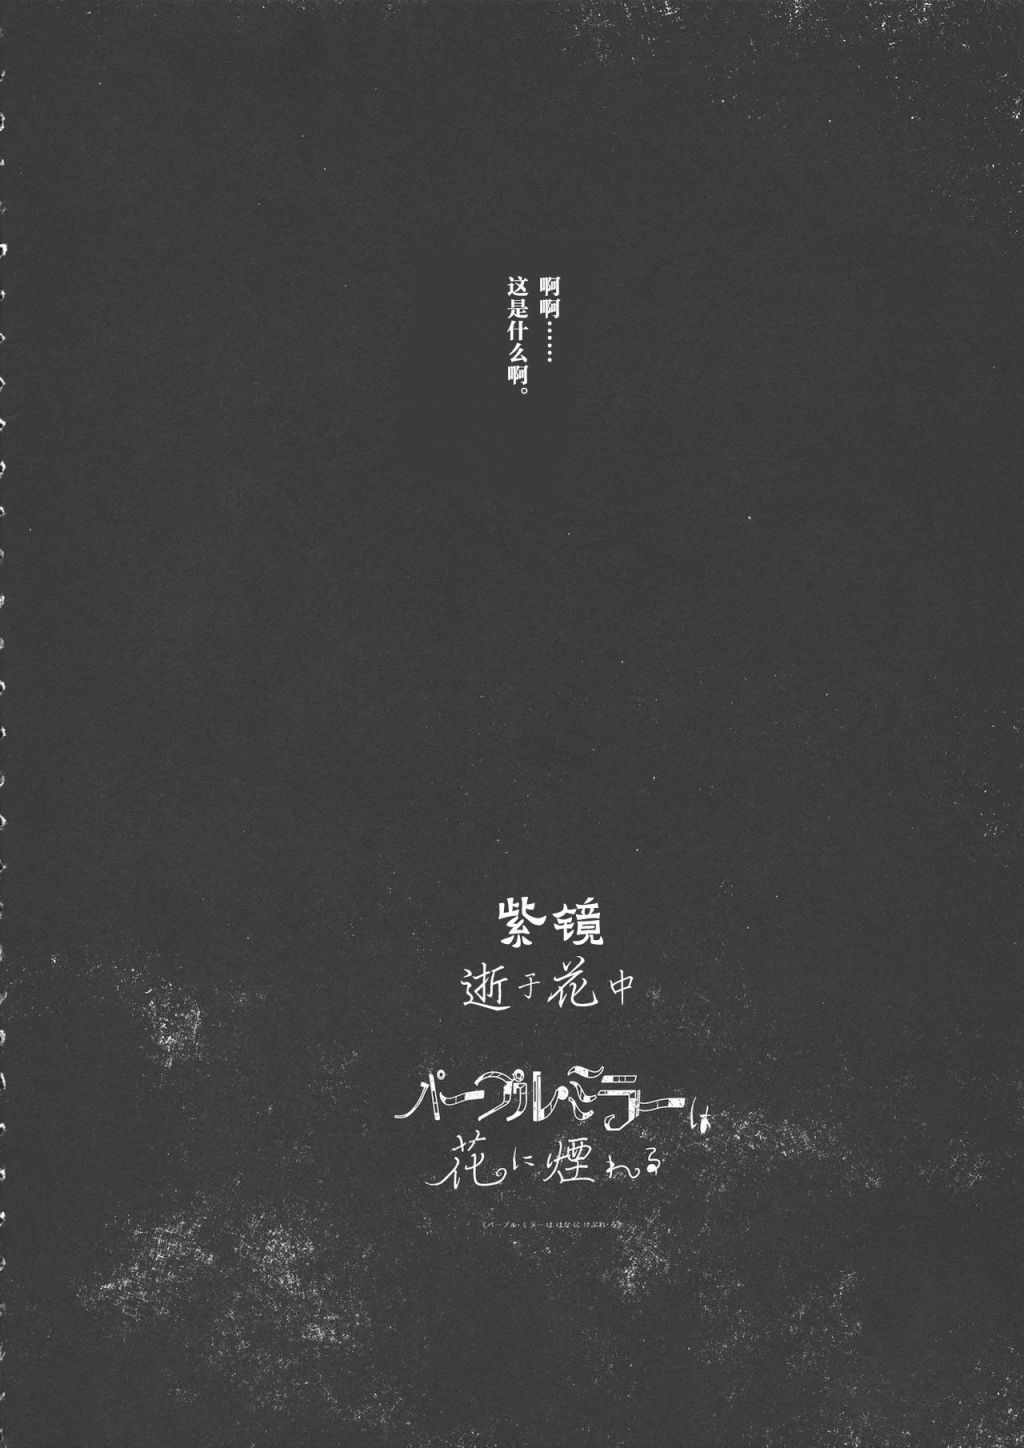 啊啊……
这是什么啊。
紫镜
逝于花中
パープル・ミラーは
花に煙れる
《パープル・ミラーは はなに けぶれ・る》